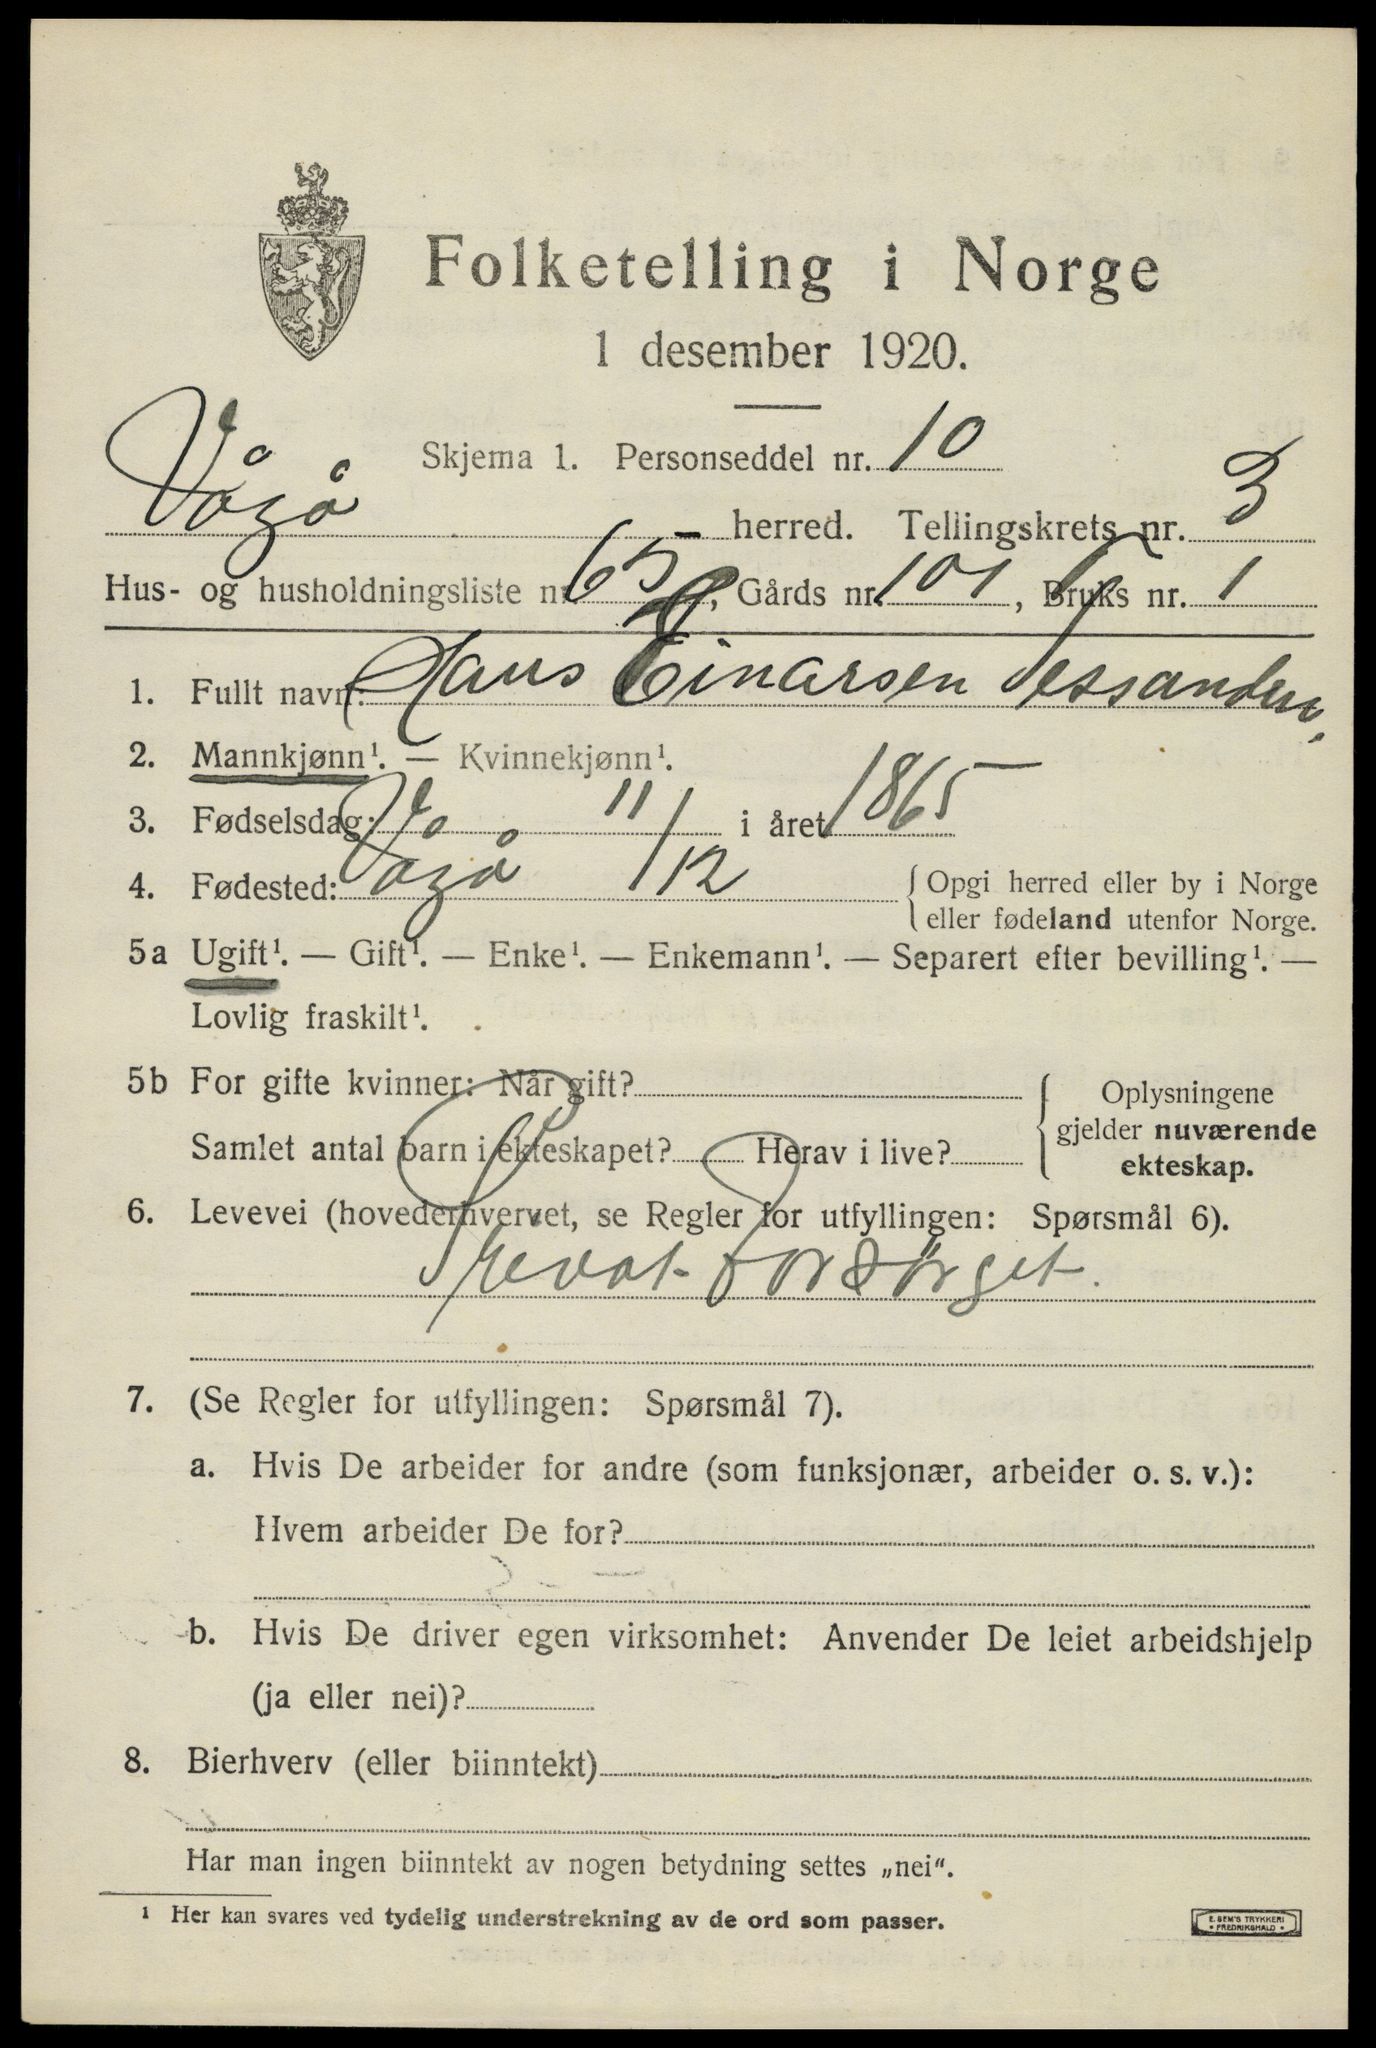 Folketelling i Norge
1 desember 1920.
Skjema 1. Personseddel nr. 10
Vågå herred. Tellingskrets nr. 3
Hus- og husholdningsliste nr. , Gårds nr. 101, Bruks nr. 1
1. Fullt navn: Hans Einarsen Tessanden,
2. Mannkjønn¹. — Kvinnekjønn¹.
3. Fødselsdag: 11/12 i året 1865
4. Fødested: Vågå { Opgi herred eller by i Norge
eller fødeland utenfor Norge.
5a Ugift¹. — Gift¹. — Enke¹. — Enkemann¹. — Separert efter bevilling¹. —
Lovlig fraskilt¹.
5b For gifte kvinner: Når gift? { Oplysningene
gjelder nuværende
ekteskap.
Samlet antal barn i ekteskapet? Herav i live?
6. Levevei (hovederhvervet, se Regler for utfyllingen: Spørsmål 6).
Privat Forsørget.
7. (Se Regler for utfyllingen: Spørsmål 7).
a. Hvis De arbeider for andre (som funksjonær, arbeider o. s. v.):
Hvem arbeider De for?
b. Hvis De driver egen virksomhet: Anvender De leiet arbeidshjelp
(ja eller nei)?
8. Bierhverv (eller biinntekt)
Har man ingen biinntekt av nogen betydning settes „nei“.
¹ Her kan svares ved tydelig understrekning av de ord som passer.
E. SEM'S TRYKKERI
• FREDRIKSHALD •